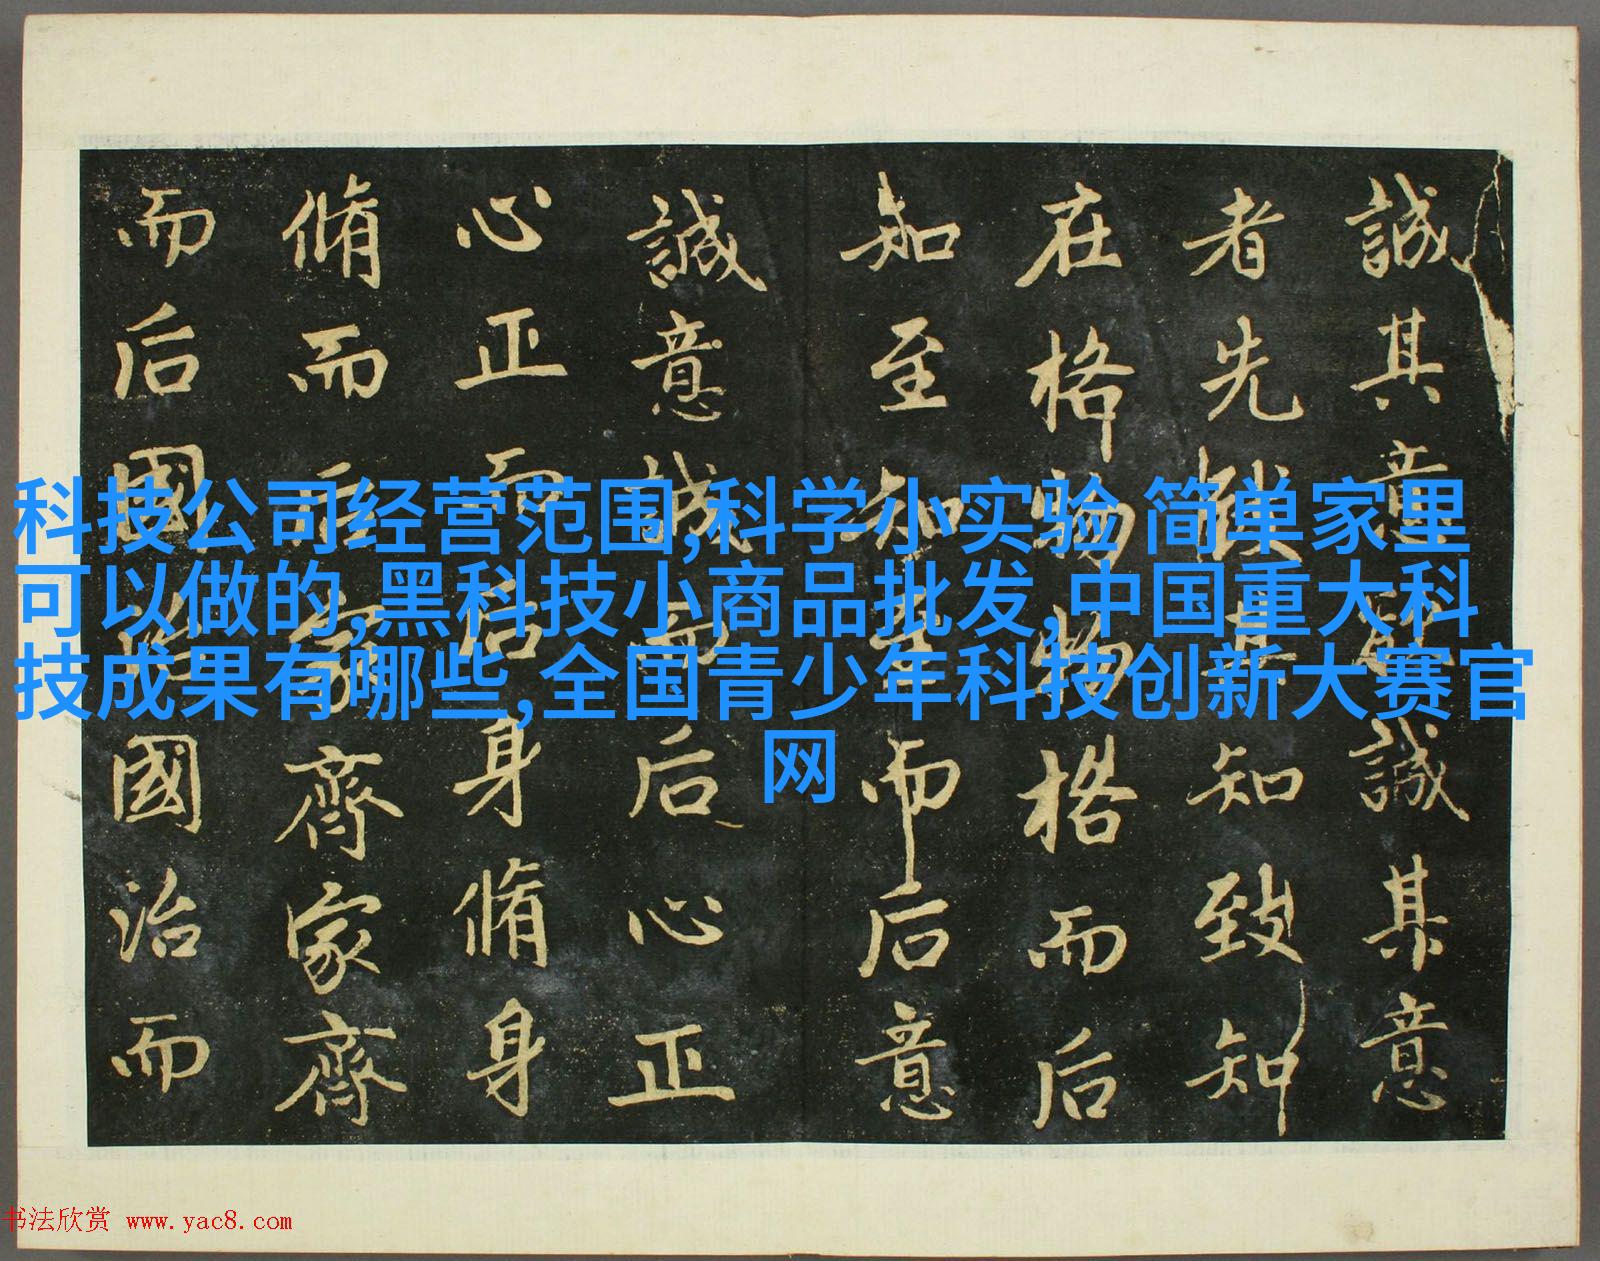 誠其意欲誠其意
者先致其知致知
在格物物格而后
知至知至而后意
誠意誠而后心正
心正而后身脩身
脩而后家齊家齊
而后國治國治而
科技公司经营范围,科学小实验 简单家里
可以做的,黑科技小商品批发,中国重大科
技成果有哪些,全国青少年科技创新大赛官
网
书法欣赏 www.yac8.com